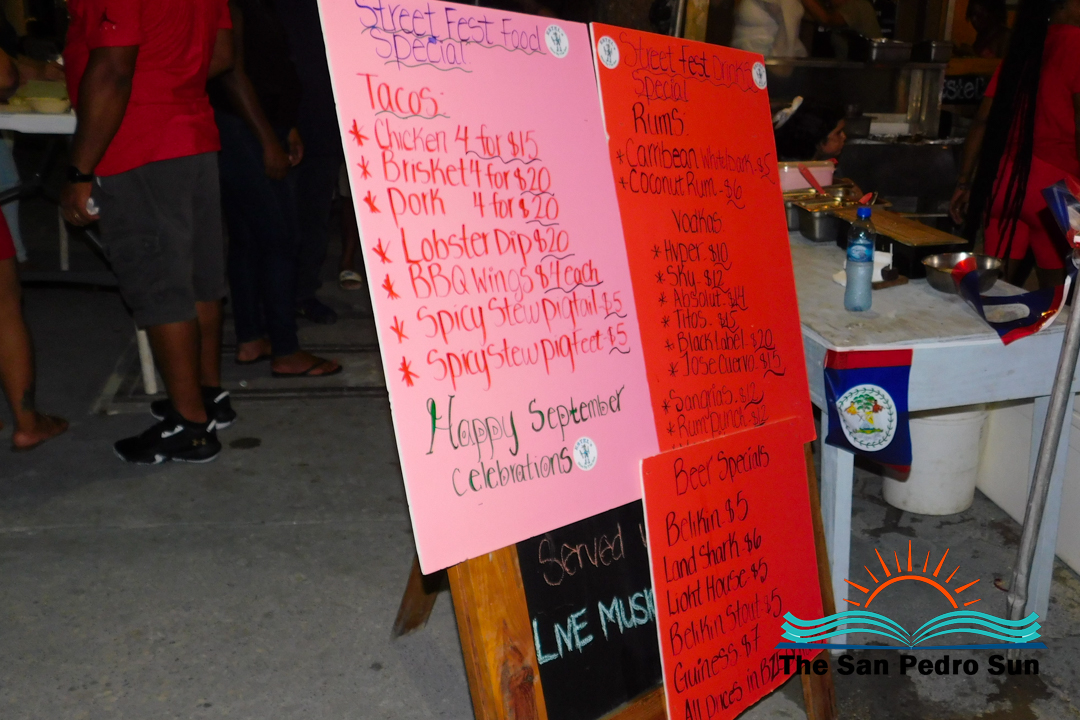 Street Fest Food
Special
Tacos:
* Chicken 4 for $15
* Brisket 4 for $20
* Pork 4 for $20
* Lobster Dip $20
* BBQ Wings $4 each
* Spicy Stew pigtail $5
* Spicy Stew pigfeet $5
Happy September
celebrations
Street Fest Drinks
Special
Rums:
* Carribean White/Dark $5
* Coconut Rum $6
Vodkas
* Hyper $10
* Sky $12
* Absolut $14
* Titos $15
* Black Label $20
* Jose Cuervo $15
* Sangrias $12
* Rum Punch
Beer Specials
Belikin $5
Land Shark $6
Light House $5
Belikin Stout $5
Guiness $7
All Prices in
Served
LIVE MUSI
The San Pedro Sun